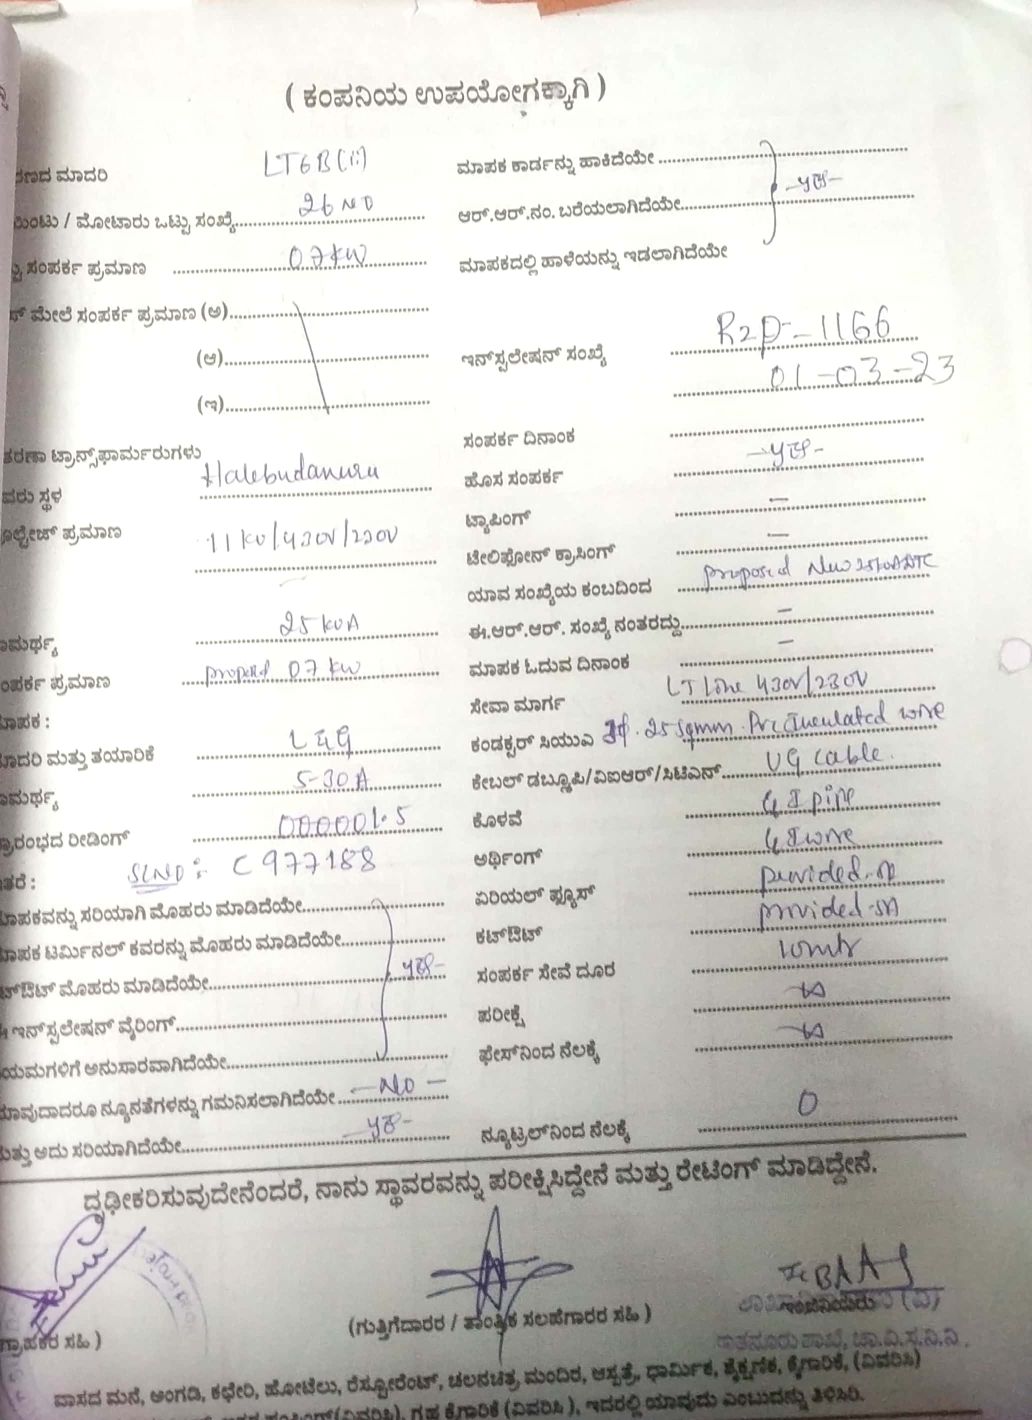 ( ಕಂಪನಿಯ ಉಪಯೋಗಕ್ಕಾಗಿ )
ಮಾದರಿ LT6B(ii)
/ ಮೋಟಾರು ಒಟ್ಟು ಸಂಖ್ಯೆ 26 NO
ಸಂಪರ್ಕ ಪ್ರಮಾಣ 07 KW
ಮೇಲೆ ಸಂಪರ್ಕ ಪ್ರಮಾಣ (ಅ)
(ಆ)
(ಇ)
ಟ್ರಾನ್ಸ್‌ಫಾರ್ಮರುಗಳು
ಸ್ಥಳ Halebudanuru
ಪ್ರಮಾಣ 11 KV/430V/230V
25 KVA
ಪ್ರಮಾಣ proposed 07 KW
ಮತ್ತು ತಯಾರಿಕೆ L&G
5-30A
ರೀಡಿಂಗ್ 000001.5
SLNO: C977188
ಸರಿಯಾಗಿ ಮೊಹರು ಮಾಡಿದೆಯೇ
ಟರ್ಮಿನಲ್ ಕವರನ್ನು ಮೊಹರು ಮಾಡಿದೆಯೇ
ಮೊಹರು ಮಾಡಿದೆಯೇ yes
ಇನ್‌ಸ್ಪಲೇಷನ್ ವೈರಿಂಗ್
ಅನುಸಾರವಾಗಿದೆಯೇ
ನ್ಯೂನತೆಗಳನ್ನು ಗಮನಿಸಲಾಗಿದೆಯೇ -NO-
ಅದು ಸರಿಯಾಗಿದೆಯೇ -yes-
ಮಾಪಕ ಕಾರ್ಡನ್ನು ಹಾಕಿದೆಯೇ
ಆರ್.ಆರ್.ನಂ. ಬರೆಯಲಾಗಿದೆಯೇ -yes-
ಮಾಪಕದಲ್ಲಿ ಹಾಳೆಯನ್ನು ಇಡಲಾಗಿದೆಯೇ
ಇನ್‌ಸ್ಪಲೇಷನ್ ಸಂಖ್ಯೆ R2P-1166
01-03-23
ಸಂಪರ್ಕ ದಿನಾಂಕ
ಹೊಸ ಸಂಪರ್ಕ -yes-
ಟ್ಯಾಪಿಂಗ್ -
ಟೇಲಿಫೋನ್ ಕ್ರಾಸಿಂಗ್ -
ಯಾವ ಸಂಖ್ಯೆಯ ಕಂಬದಿಂದ proposed New
ಈ.ಆರ್.ಆರ್. ಸಂಖ್ಯೆ ನಂತರದ್ದು -
ಮಾಪಕ ಓದುವ ದಿನಾಂಕ -
ಸೇವಾ ಮಾರ್ಗ LT Line 430V/230V
ಕಂಡಕ್ಟರ್ ಸಿಯುಎ 25 sqmm. wire
ಕೇಬಲ್ ಡಬ್ಲೂಪಿ/ವಿಐಆರ್/ಸಿಟಿಎನ್ UG cable.
ಕೊಳವೆ GI pipe
ಅರ್ಥಿಂಗ್ GI wire
ಏರಿಯಲ್ ಫ್ಯೂಸ್ provided
ಕಟ್‌ಔಟ್ provided
ಸಂಪರ್ಕ ಸೇವೆ ದೂರ 10mtr
ಪರೀಕ್ಷೆ
ಫೇಸ್‌ನಿಂದ ನೆಲಕ್ಕೆ
ನ್ಯೂಟ್ರಲ್‌ನಿಂದ ನೆಲಕ್ಕೆ 0
ದೃಢೀಕರಿಸುವುದೇನೆಂದರೆ, ನಾನು ಸ್ಥಾವರವನ್ನು ಪರೀಕ್ಷಿಸಿದ್ದೇನೆ ಮತ್ತು ರೇಟಿಂಗ್ ಮಾಡಿದ್ದೇನೆ.
ಗ್ರಾಹಕರ ಸಹಿ )
(ಗುತ್ತಿಗೆದಾರರ / ತಾಂತ್ರಿಕ ಸಲಹೆಗಾರರ ಸಹಿ )
ಇಂಜಿನಿಯರು
ವಾಸದ ಮನೆ, ಅಂಗಡಿ, ಕಛೇರಿ, ಹೋಟೆಲು, ರೆಸ್ಟೋರೆಂಟ್, ಚಲನಚಿತ್ರ ಮಂದಿರ, ಆಸ್ಪತ್ರೆ, ಧಾರ್ಮಿಕ, ಶೈಕ್ಷಣಿಕ, ಕೈಗಾರಿಕೆ, (ವಿವರಿಸಿ)
(ವಿವರಿಸಿ), ಗೃಹ ಕೈಗಾರಿಕೆ (ವಿವರಿಸಿ), ಇದರಲ್ಲಿ ಯಾವುದು ಎಂಬುದನ್ನು ತಿಳಿಸಿರಿ.